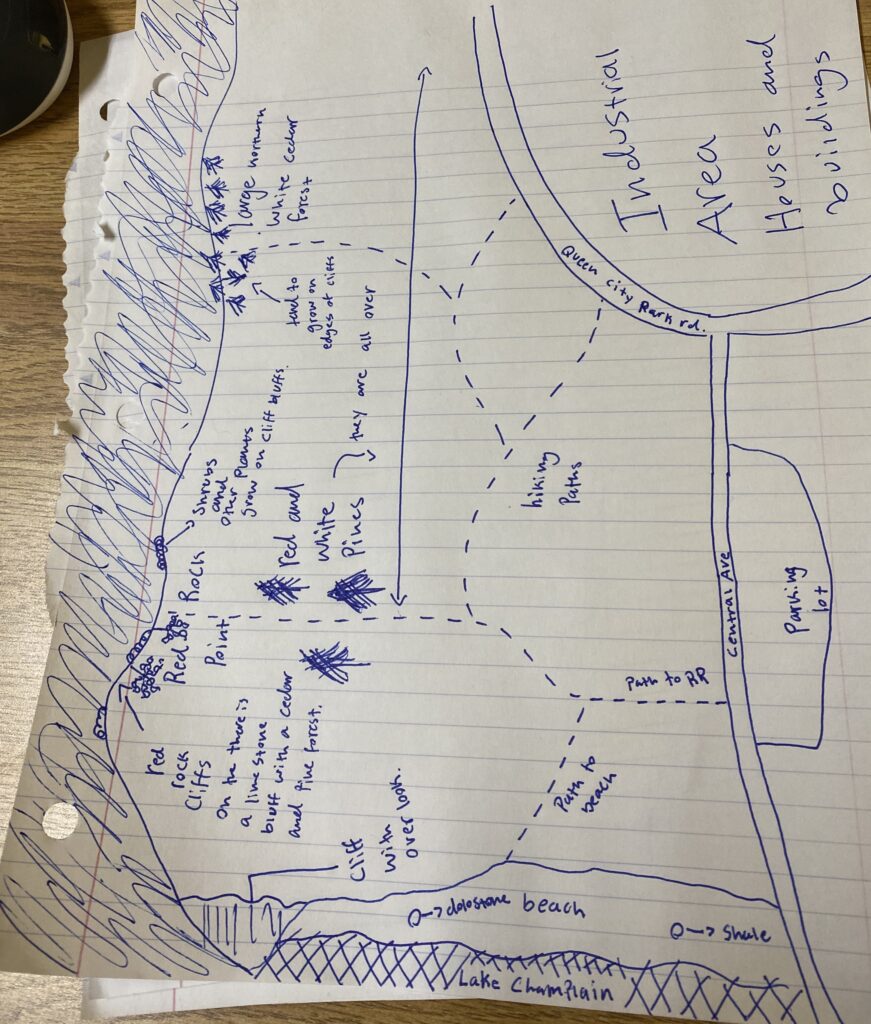 large northern
white cedar
forest
tend to
grow on
edges of cliffs
Shrubs
and
other plants
grow on cliff bluffs.
Red Rock
Point
red and
white
Pines
they are all over
red
rock
cliffs
on the there is
a lime stone
bluff with a cedar
and pine forest.
Cliff
with
over look.
hiking
Paths
Path to RR
Path to
beach
Queen City Park rd.
Central Ave
Parking
lot
Industrial
Area
Houses and
buildings
O→ dolostone
beach
O→ Shale
Lake Champlain